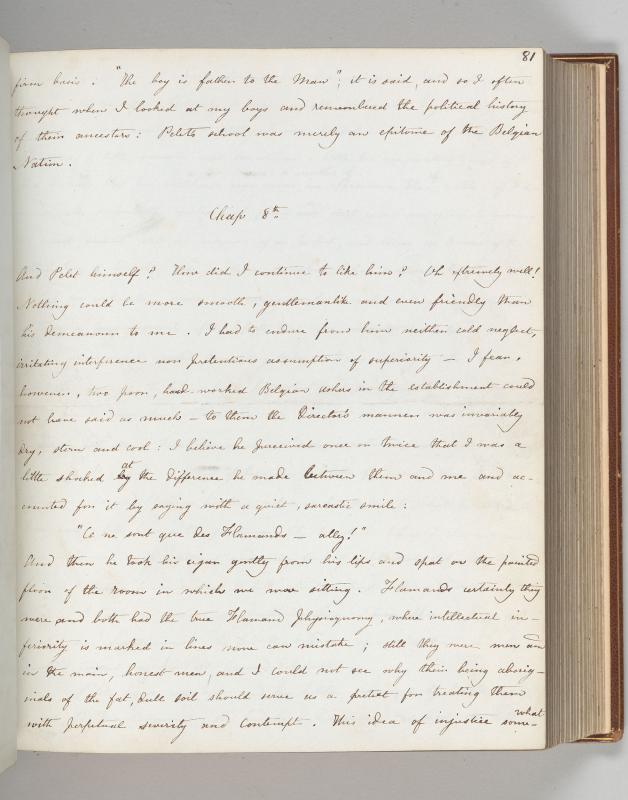 81
firm basis: "the boy is father to the Man"; it is said, and so I often
thought when I looked at my boys and remembered the political history
of their ancestors: Pelets school was merely an epitome of the Belgian
Nation.
Chap 8th
And Pelet himself? How did I continue to like him? Oh extremely well!
Nothing could be more smooth, gentlemanlike and even friendly than
his demeanour to me. I had to endure from him neither cold neglect,
irritating interference nor pretentious assumption of superiority — I fear,
however, two poor, hard-worked Belgian ushers in the establishment could
not have said as much — to them the Director's manner was invariably
dry, stern and cool: I believe he perceived once or twice that I was a
little shocked at the difference he made between them and me and ac-
counted for it by saying with a quiet, sarcastic smile:
"Ce ne sont que des Flamands — allez!"
And then he took his cigar gently from his lips and spat on the painted
floor of the room in which we were sitting. Flamands certainly they
were and both had the true Flamand physiognomy, where intellectual in-
feriority is marked in lines none can mistake; still they were men and
in the main, honest men, and I could not see why their being aborig-
inals of the flat, dull soil should serve as a pretext for treating them
with perpetual severity and contempt. This idea of injustice some-
what